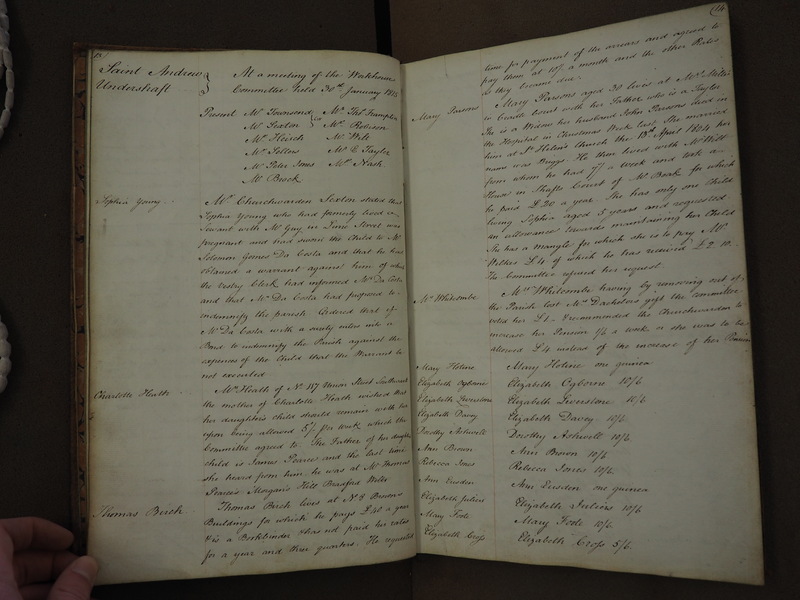 Saint Andrew
Undershaft
At a meeting of the Workhouse
Committee held 30th January 1815
Present Mr Townsend Mr Thos Frampton
Mr Sexton Mr Robison
Mr Heisch Mr Wilt
Mr Fellows Mr E Taylor
Mr Peter Jones Mr Nash
Mr Brock
Sophia Young
Mr Churchwarden Sexton stated that
Sophia Young who had formerly lived as
Servant with Mr Guy in Lime Street was
pregnant and had sworn the Child to Mr
Solomon Gomes Da Costa and that he had
obtained a warrant against him of which
the Vestry Clerk had informed Mr Da Costa
and that Mr Da Costa had proposed to
indemnify the parish. Ordered that if
Mr Da Costa with a surety enters into a
Bond to indemnify the Parish against the
expences of the Child that the Warrant be
not executed
Charlotte Heath
Mrs Heath of No 117 Union Street Southwark
the mother of Charlotte Heath wished that
her daughter's child should remain with her
upon being allowed 5/- per week which the
Committee agreed to. The Father of her daughters
child is James Pearce and the last time
she heard from him he was at Mr Thomas
Pearces Morgan's Hill Bradford Wilts
Thomas Birch
Thomas Birch lives at No 3 Browns
Buildings for which he pays £40 a year
& is a Bookbinder & has not paid his rates
for a year and three quarters. He requested
14
time for payment of the arrears and agreed to
pay them at 10/- a month and the other Rates
as they became due.
Mary Parsons
Mary Parsons aged 30 lives at Mr Wilkes
in Cuxids Court with her Father who is a Taylor
She is a Widow her husband John Parsons died in
the Hospital in Christmas Week last. She married
him at St Helen's Church the 13th April 1804 her
name was Briggs. He then lived with Mr Will
from whom he had 7/- a week and took a
House in Shafts Court of Mr Beak for which
he paid £20 a year. She has only one Child
living Sophia aged 3 years and requested
an allowance towards maintaining her Child
She has a Mangle for which she is to pay Mr
Wilkes £4 of which he has received £2 10.
The Committee refused her request.
Mrs Whitcombe
Mrs Whitcombe having by removing out of
the Parish lost Mr Dacketors gift the Committee
voted her £1 - & recommended the Churchwarden to
increase her Pension 1/6 a week or she was to be
allowed £4 instead of the increase of her Pension
Mary Holine Mary Holine one guinea
Elizabeth Ogborne Elizabeth Ogborne 10/6
Elizabeth Liverstone Elizabeth Liverstone 10/6
Elizabeth Davey Elizabeth Davey 10/6
Dorothy Ashwell Dorothy Ashwell 10/6
Ann Brown Ann Brown 10/6
Rebecca Jones Rebecca Jones 10/6
Ann Eusden Ann Eusden one guinea
Elizabeth Julians Elizabeth Julians 10/6
Mary Foole Mary Foole 10/6
Elizabeth Cross Elizabeth Cross 5/6